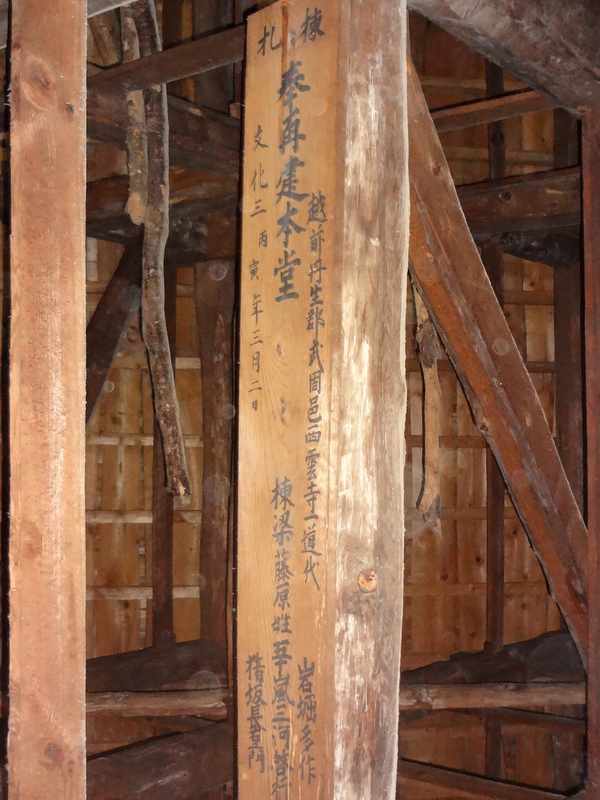 棟札
越前丹生郡武周邑西雲寺一道代
奉再建本堂
文化三丙寅年三月二日
岩堀多作
棟梁藤原姓五十嵐三河